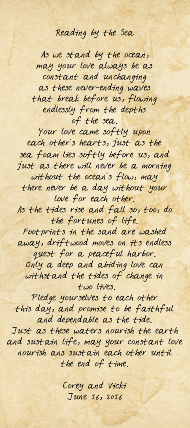 Reading by the Sea
As we stand by the ocean,
may your love always be as
constant and unchanging
as these never-ending waves
that break before us, flowing
endlessly from the depths
of the sea.
Your love came softly upon
each other's hearts, just as the
sea foam lies softly before us, and
just as there will never be a morning
without the ocean's flow, may
there never be a day without your
love for each other.
As the tides rise and fall so, too, do
the fortunes of life.
Footprints in the sand are washed
away, driftwood moves on its endless
quest for a peaceful harbor.
Only a deep and abiding love can
withstand the tides of change in
two lives.
Pledge yourselves to each other
this day, and promise to be faithful
and dependable as the tide.
Just as these waters nourish the earth
and sustain life, may your constant love
nourish ans sustain each other until
the end of time.
Corey and Vicki
June 16, 2016